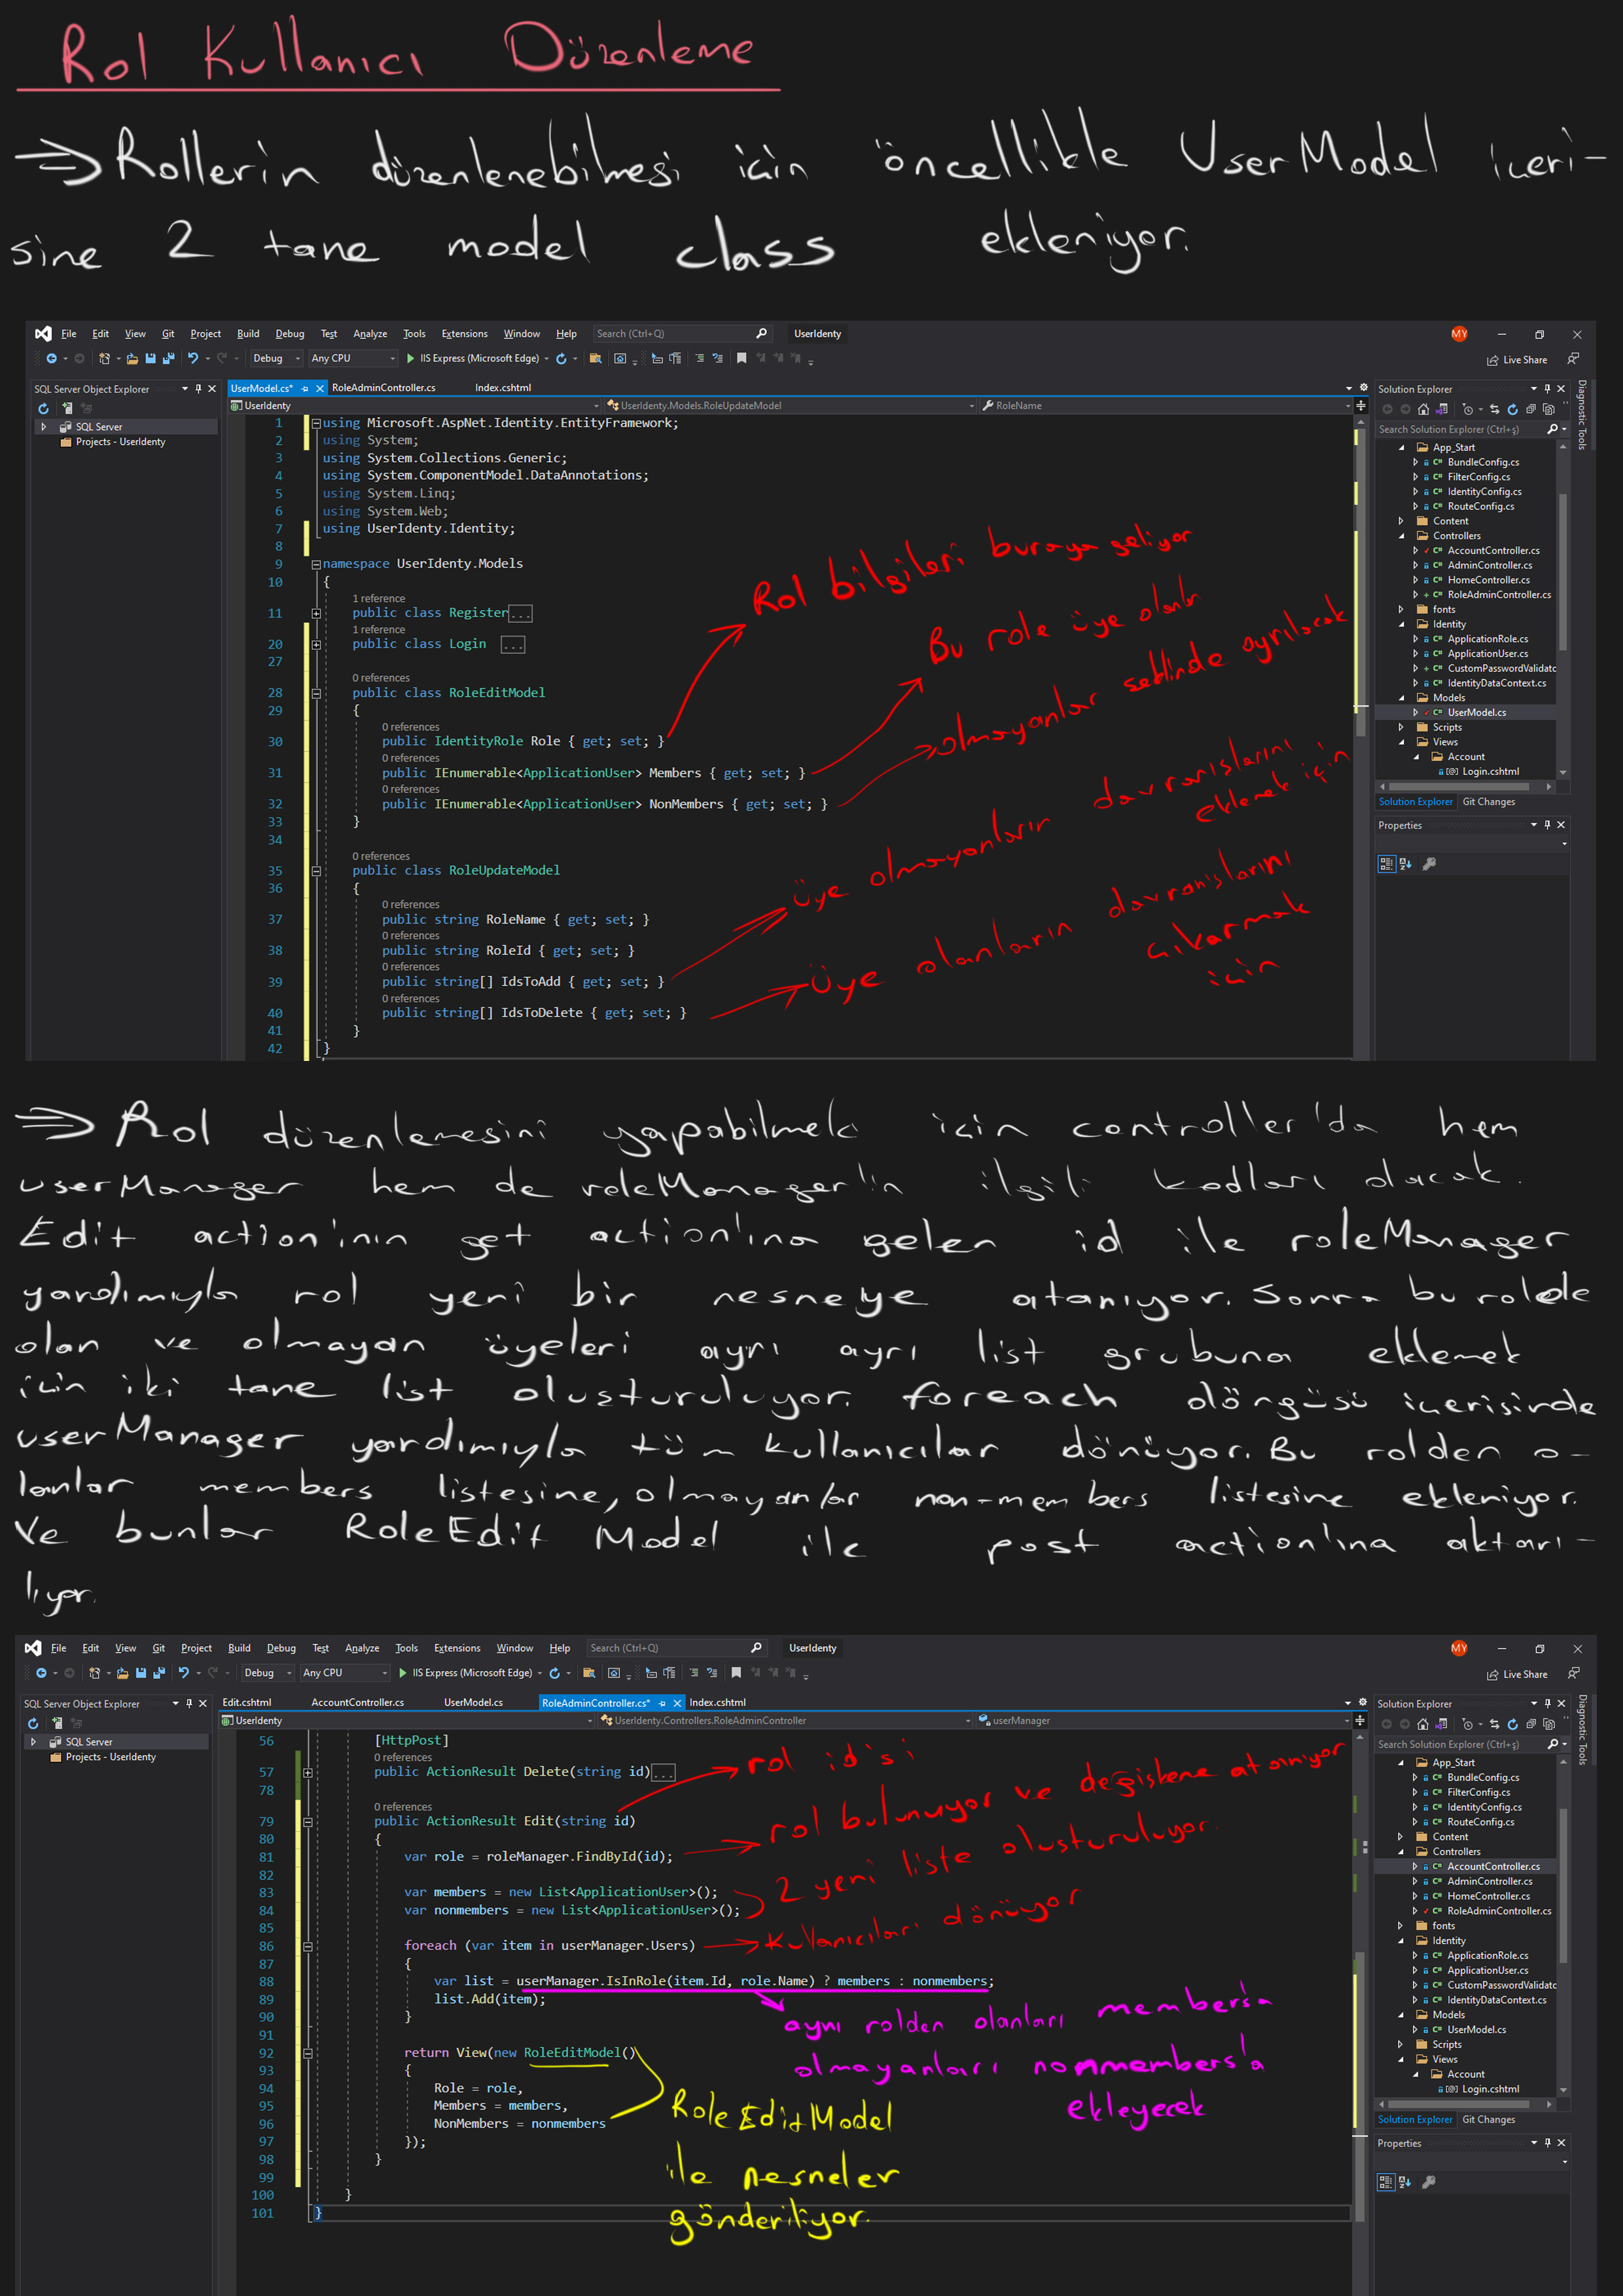 Rol Kullanıcı Düzenleme
⇒ Rollerin düzenlenebilmesi için öncellikle UserModel içeri-
sine 2 tane model class ekleniyor.
File Edit View Git Project Build Debug Test Analyze Tools Extensions Window Help Search (Ctrl+Q) UserIdenty MY
Debug Any CPU IIS Express (Microsoft Edge) Live Share
SQL Server Object Explorer
SQL Server
Projects - UserIdenty
UserModel.cs* RoleAdminController.cs Index.cshtml
UserIdenty UserIdenty.Models.RoleUpdateModel RoleName
1 using Microsoft.AspNet.Identity.EntityFramework;
2 using System;
3 using System.Collections.Generic;
4 using System.ComponentModel.DataAnnotations;
5 using System.Linq;
6 using System.Web;
7 using UserIdenty.Identity;
8
9 namespace UserIdenty.Models
10 {
1 reference
11 public class Register...
1 reference
20 public class Login ...
27
0 references
28 public class RoleEditModel
29 {
0 references
30 public IdentityRole Role { get; set; }
0 references
31 public IEnumerable<ApplicationUser> Members { get; set; }
0 references
32 public IEnumerable<ApplicationUser> NonMembers { get; set; }
33 }
34
0 references
35 public class RoleUpdateModel
36 {
0 references
37 public string RoleName { get; set; }
0 references
38 public string RoleId { get; set; }
0 references
39 public string[] IdsToAdd { get; set; }
0 references
40 public string[] IdsToDelete { get; set; }
41 }
42 }
Rol bilgileri buraya geliyor
Bu role üye olanlar
olmayanlar şeklinde ayrılacak
üye olmayanların davranışlarını
eklemek için
üye olanların davranışlarını
çıkarmak
için
Solution Explorer
Search Solution Explorer (Ctrl+ş)
App_Start
BundleConfig.cs
FilterConfig.cs
IdentityConfig.cs
RouteConfig.cs
Content
Controllers
AccountController.cs
AdminController.cs
HomeController.cs
RoleAdminController.cs
fonts
Identity
ApplicationRole.cs
ApplicationUser.cs
CustomPasswordValidatc
IdentityDataContext.cs
Models
UserModel.cs
Scripts
Views
Account
Login.cshtml
Solution Explorer Git Changes
Properties
Diagnostic Tools
⇒ Rol düzenlemesini yapabilmek için controller'da hem
userManager hem de roleManager'ın ilgili kodları olacak.
Edit action'ının get action'ına gelen id ile roleManager
yardımıyla rol yeni bir nesneye atanıyor. Sonra bu rolede
olan ve olmayan üyeleri ayrı ayrı list grubuna eklemek
için iki tane list oluşturuluyor. foreach döngüsü içerisinde
userManager yardımıyla tüm kullanıcılar dönüyor. Bu rolden o-
lanlar members listesine, olmayanlar non-members listesine ekleniyor.
Ve bunlar RoleEdit Model ile post action'ına aktarı-
lıyor.
File Edit View Git Project Build Debug Test Analyze Tools Extensions Window Help Search (Ctrl+Q) UserIdenty MY
Debug Any CPU IIS Express (Microsoft Edge) Live Share
SQL Server Object Explorer
SQL Server
Projects - UserIdenty
Edit.cshtml AccountController.cs UserModel.cs RoleAdminController.cs* Index.cshtml
UserIdenty UserIdenty.Controllers.RoleAdminController userManager
56 [HttpPost]
0 references
57 public ActionResult Delete(string id)...
78
0 references
79 public ActionResult Edit(string id)
80 {
81 var role = roleManager.FindById(id);
82
83 var members = new List<ApplicationUser>();
84 var nonmembers = new List<ApplicationUser>();
85
86 foreach (var item in userManager.Users)
87 {
88 var list = userManager.IsInRole(item.Id, role.Name) ? members : nonmembers;
89 list.Add(item);
90 }
91
92 return View(new RoleEditModel()
93 {
94 Role = role,
95 Members = members,
96 NonMembers = nonmembers
97 });
98 }
99
100 }
101 }
rol id'si
rol bulunuyor ve değişkene atanıyor
2 yeni liste oluşturuluyor.
Kullanıcıları dönüyor
aynı rolden olanları members'a
olmayanları nonmembers'a
ekleyecek
RoleEditModel
ile nesneler
gönderiliyor.
Solution Explorer
Search Solution Explorer (Ctrl+ş)
App_Start
BundleConfig.cs
FilterConfig.cs
IdentityConfig.cs
RouteConfig.cs
Content
Controllers
AccountController.cs
AdminController.cs
HomeController.cs
RoleAdminController.cs
fonts
Identity
ApplicationRole.cs
ApplicationUser.cs
CustomPasswordValidatc
IdentityDataContext.cs
Models
UserModel.cs
Scripts
Views
Account
Login.cshtml
Solution Explorer Git Changes
Properties
Diagnostic Tools